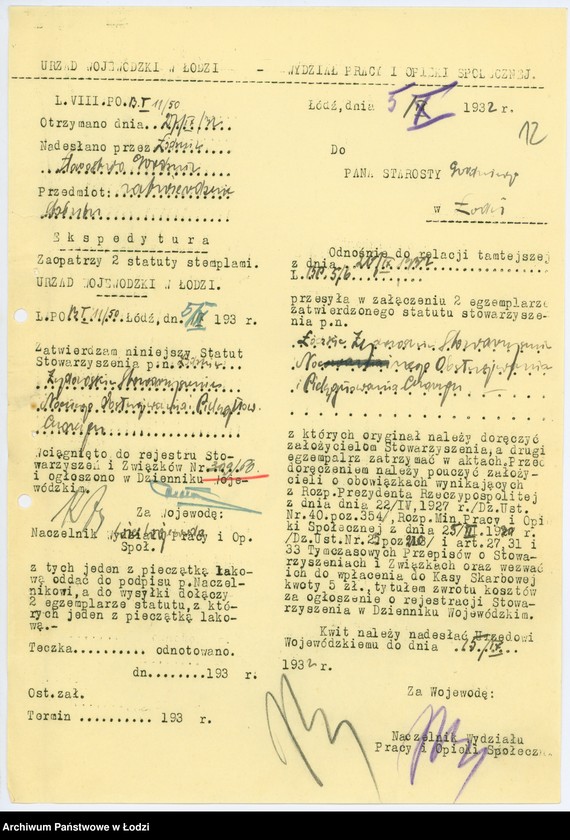 URZĄD WOJEWÓDZKI W ŁODZI - WYDZIAŁ PRACY I OPIEKI SPOŁECZNEJ.
L.VIII.PO.13.I 11/50
Otrzymano dnia..27/IV/32...
Nadesłano przez Łódzkie
Starostwo Grodzkie
Przedmiot: zatwierdzenie
statutu
Ekspedytura
Zaopatrzy 2 statuty stemplami.
URZĄD WOJEWÓDZKI W ŁODZI.
L.PO. 11/50. Łódź, dn. 193 r.
Zatwierdzam niniejszy Statut
Stowarzyszenia p.n.
Żydowskie Stowarzyszenie
Nocnego Obsługiwania i Pielęgnow.
Chorych
Wciągnięto do rejestru Sto-
warzyszeń i Związków Nr.
i ogłoszono w Dzienniku Woje-
wódzkim.
Za Wojewodę:
Naczelnik Wydziału Pracy i Op.
Społ.
z tych jeden z pieczątką lako-
wą oddać do podpisu p.Naczel-
nikowi, a do wysyłki dołączyć
2 egzemplarze statutu, z któ-
rych jeden z pieczątką lako-
wą.-
Teczka.......... odnotowano.
dn........193 r.
Ost.zał.
Termin .......... 193 r.
Łódź, dnia 5 1932 r.
12
Do
PANA STAROSTY Grodzkiego
w Łodzi
Odnośnie do relacji tamtejszej
z dnia 1932
L.
przesyła w załączeniu 2 egzemplarze
zatwierdzonego statutu stowarzysze-
nia p.n.
Łódzkie Żydowskie Stowarzyszenie
Nocnego Obsługiwania
i Pielęgnowania Chorych
z których oryginał należy doręczyć
założycielom Stowarzyszenia, a drugi
egzemplarz zatrzymać w aktach. Przed
doręczeniem należy pouczyć założy-
cieli o obowiązkach wynikających
z Rozp.Prezydenta Rzeczypospolitej
z dnia dnia 22/IV, 1927 r./Dz.Ust.
Nr.40.poz.354/, Rozp.Min.Pracy i Opi
ki Społecznej z dnia 23/ 19 r
/Dz.Ust.Nr.2 poz. / i art.27,31 i
33 Tymczasowych Przepisów o Stowa-
rzyszeniach i Związkach oraz wezwać
ich do wpłacenia do Kasy Skarbowej
kwoty 5 zł., tytułem zwrotu kosztów
za ogłoszenie o rejestracji Stowa-
rzyszenia w Dzienniku Wojewódzkim.
Kwit należy nadesłać Urzędowi
Wojewódzkiemu do dnia
1932 r.
Za Wojewodę:
Naczelnik Wydziału
Pracy i Opieki Społeczn
Archiwum Państwowe w Łodzi